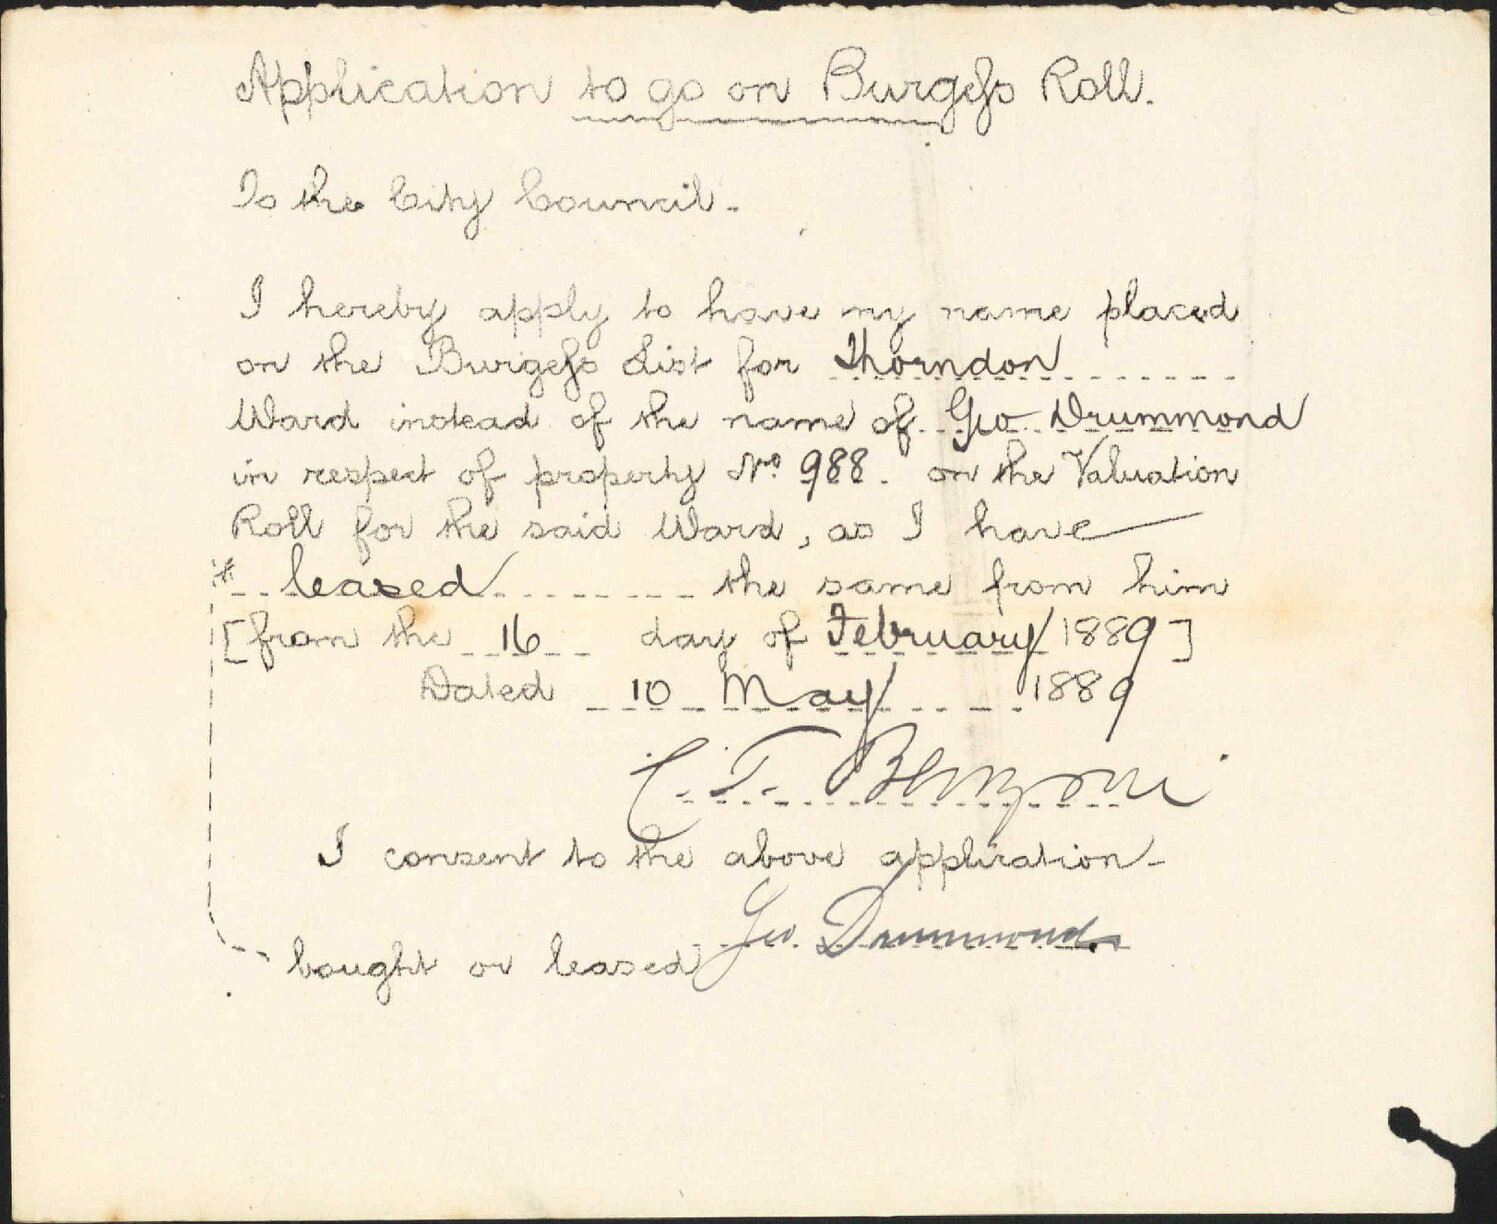 Application to go on Burgess Roll.
To the City Council -
I hereby apply to have my name placed
on the Burgess List for Thorndon
Ward instead of the name of Geo Drummond
in respect of property No 988. on the Valuation
Roll for the said Ward, as I have
* leased the same from him
[from the 16 day of February 1889]
Dated 10 May 1889
C. T. Benzoni
I consent to the above application -
Geo. Drummond
bought or leased